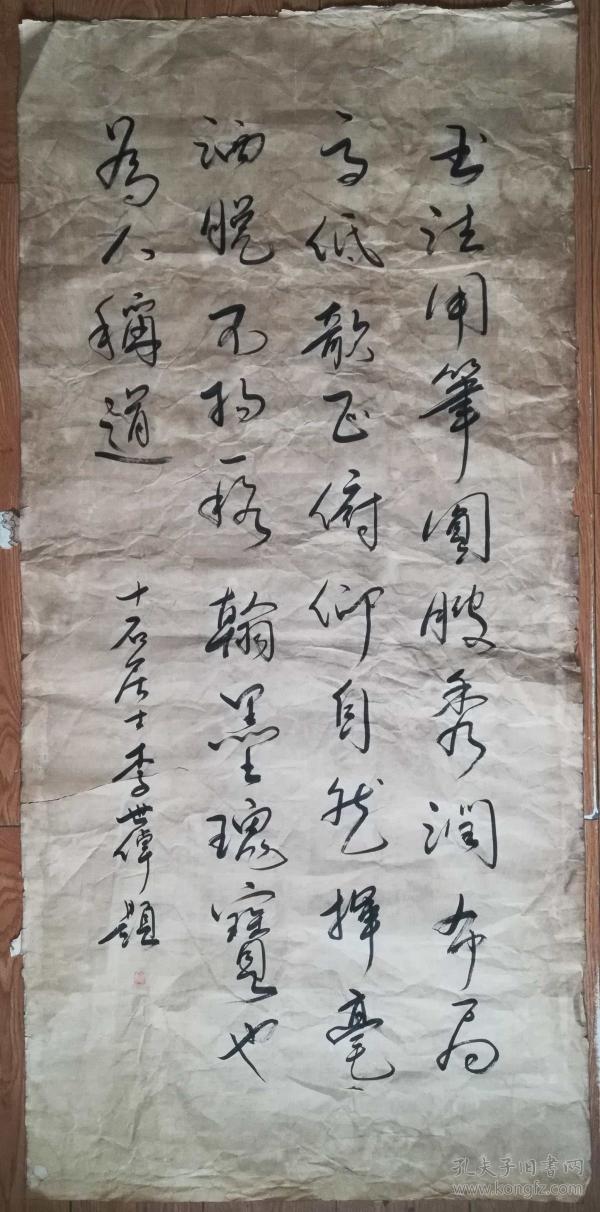 书法用筆圓腴秀潤布局
高低欹正俯仰自然揮毫
洒脱不拘一格翰墨瑰寳也
爲人稱道
十石居士李世偉題
孔夫子旧书网
www.kongfz.com